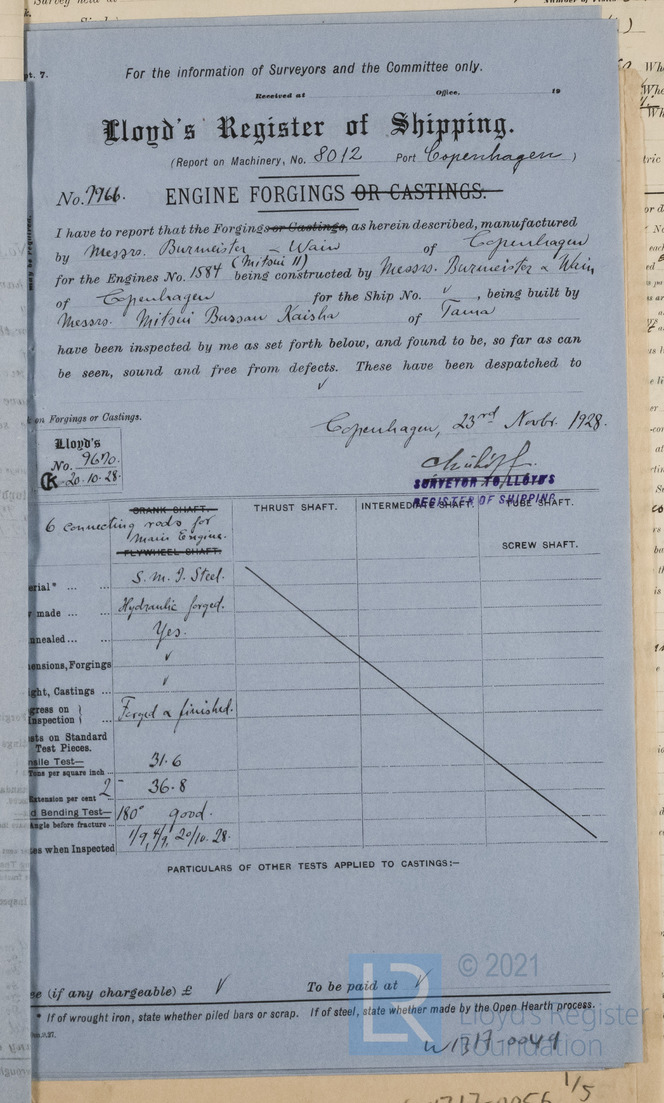 pt. 7.
For the information of Surveyors and the Committee only.
Received at Office, 19
Lloyd's Register of Shipping.
(Report on Machinery, No. 8012 Port Copenhagen)
No. 7966. ENGINE FORGINGS OR CASTINGS.
I have to report that the Forgings or Castings, as herein described, manufactured
by Messrs. Burmeister & Wain of Copenhagen
(Mitsui 11)
for the Engines No. 1584 being constructed by Messrs. Burmeister & Wain
of Copenhagen for the Ship No. ✓, being built by
Messrs. Mitsui Bussan Kaisha of Tama
have been inspected by me as set forth below, and found to be, so far as can
be seen, sound and free from defects. These have been despatched to
✓
on Forgings or Castings.
Copenhagen, 23rd Novbr. 1928.
Lloyd's
No. 9670.
20.10.28.
SURVEYOR TO LLOYD'S
REGISTER OF SHIPPING
CRANK SHAFT. THRUST SHAFT. INTERMEDIATE SHAFT. TUBE SHAFT.
6 connecting rods for
Main Engine.
FLYWHEEL SHAFT. SCREW SHAFT.
erial* ... ... S.M.I. Steel.
made ... Hydraulic forged.
nnealed ... ... Yes.
ensions, Forgings ✓
ght, Castings ... ✓
gress on
Inspection Forged & finished.
sts on Standard
Test Pieces.
nsile Test— 31.6
Tons per square inch ...
Extension per cent 2" 36.8
d Bending Test— 180° good.
Angle before fracture ...
es when Inspected 1/9, 4/9, 20/10.28.
PARTICULARS OF OTHER TESTS APPLIED TO CASTINGS:—
e (if any chargeable) £ ✓ To be paid at ✓
* If of wrought iron, state whether piled bars or scrap. If of steel, state whether made by the Open Hearth process.
LR © 2021
Lloyd's Register
Foundation
W1317-0049
1/5